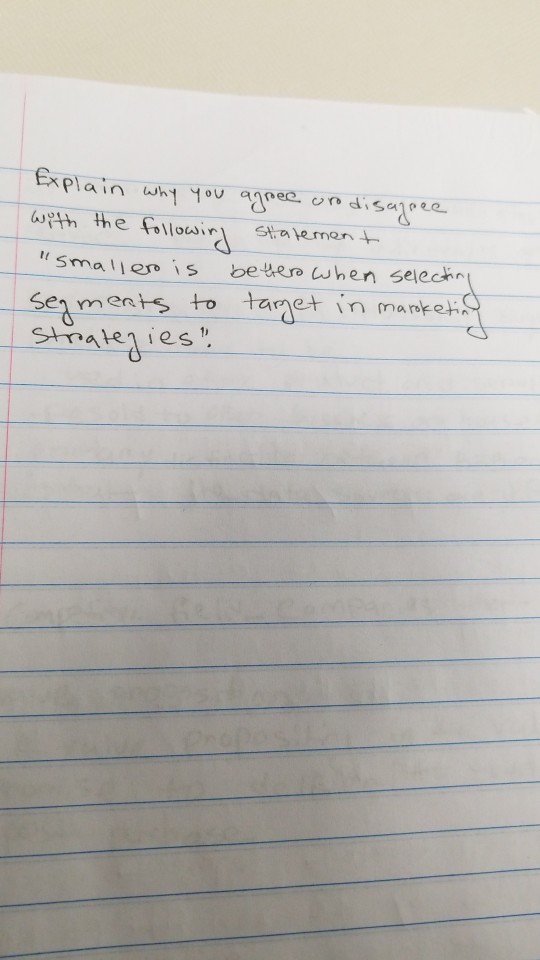 Explain why you agree or disagree
with the following statement
"smaller is better when selecting
segments to target in marketing
strategies".